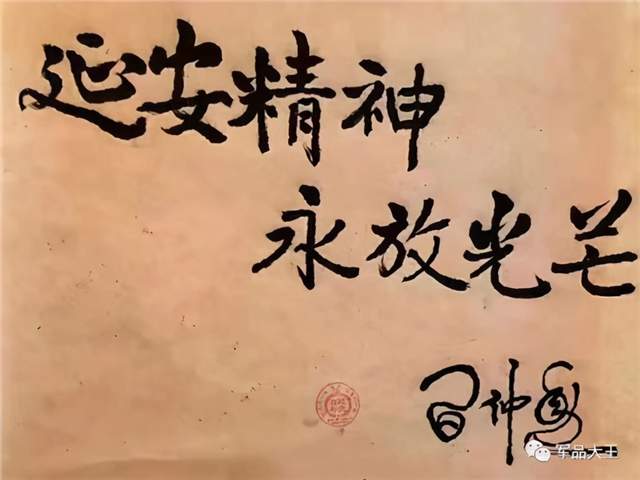 延安精神
永放光芒
习仲勋
军品大王